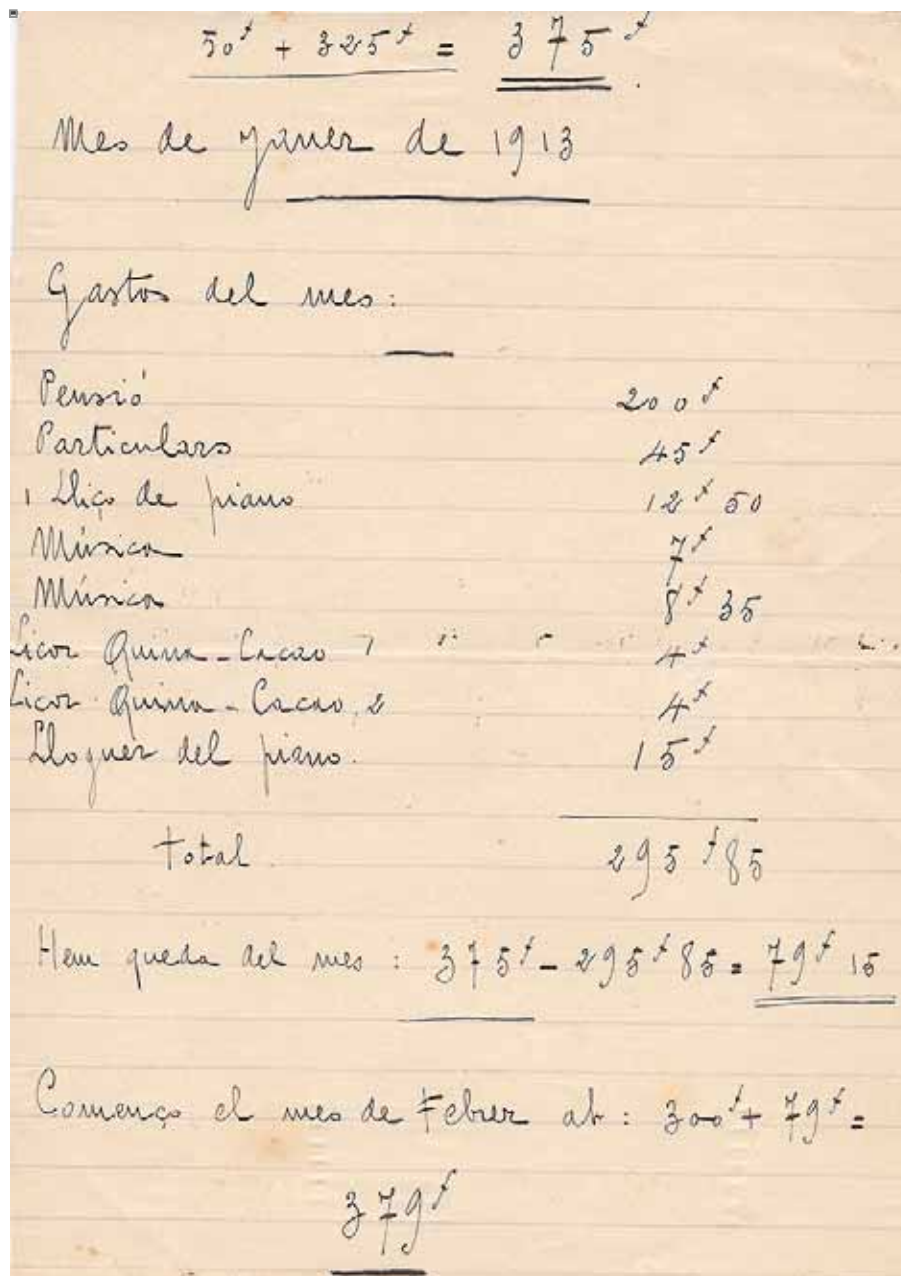 50f + 325f = 375f.
Mes de Janer de 1913
Gastos del mes:
Pensió 200f
Particulars 45f
1 Lliço de piano 12f 50
Música 7f
Música 8f 35
Licor Quina-Cacao 1 4f
Licor Quina-Cacao 2 4f
Lloguer del piano. 15f
Total 295f85
Hem queda del mes : 375f - 295f85 = 79f 15
Començo el mes de Febrer ab : 300f + 79f =
379f